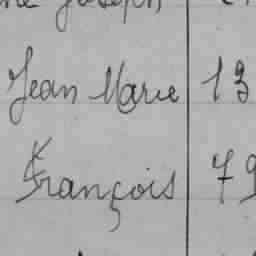 Joseph
Jean Marie 13
François 79